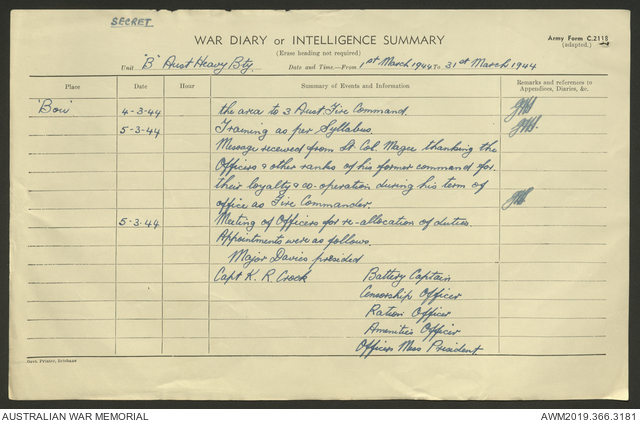 SECRET
WAR DIARY or INTELLIGENCE SUMMARY
Army Form C.2118
(adapted.)
(Erase heading not required)
Unit "B" Aust Heavy Bty. Date and Time—From 1st March 1944 To 31st March 1944
Place Date Hour Summary of Events and Information Remarks and references in Appendices, Diaries, &c.
'Bow' 4-3-44 the area to 3 Aust. Fire Command.
5-3-44 Training as per Syllabus.
Message received from Lt. Col. Magee thanking the
Officers & other ranks of his former command for
their loyalty & co-operation during his term of
office as Fire Commander.
5-3-44 Meeting of Officers for re-allocation of duties.
Appointments were as follows.
Major Davies presided
Capt K. R. Crock Battery Captain
Censorship Officer
Ration Officer
Amenities Officer
Officers Mess President
Printer, Brisbane
AUSTRALIAN WAR MEMORIAL AWM2019.366.3181